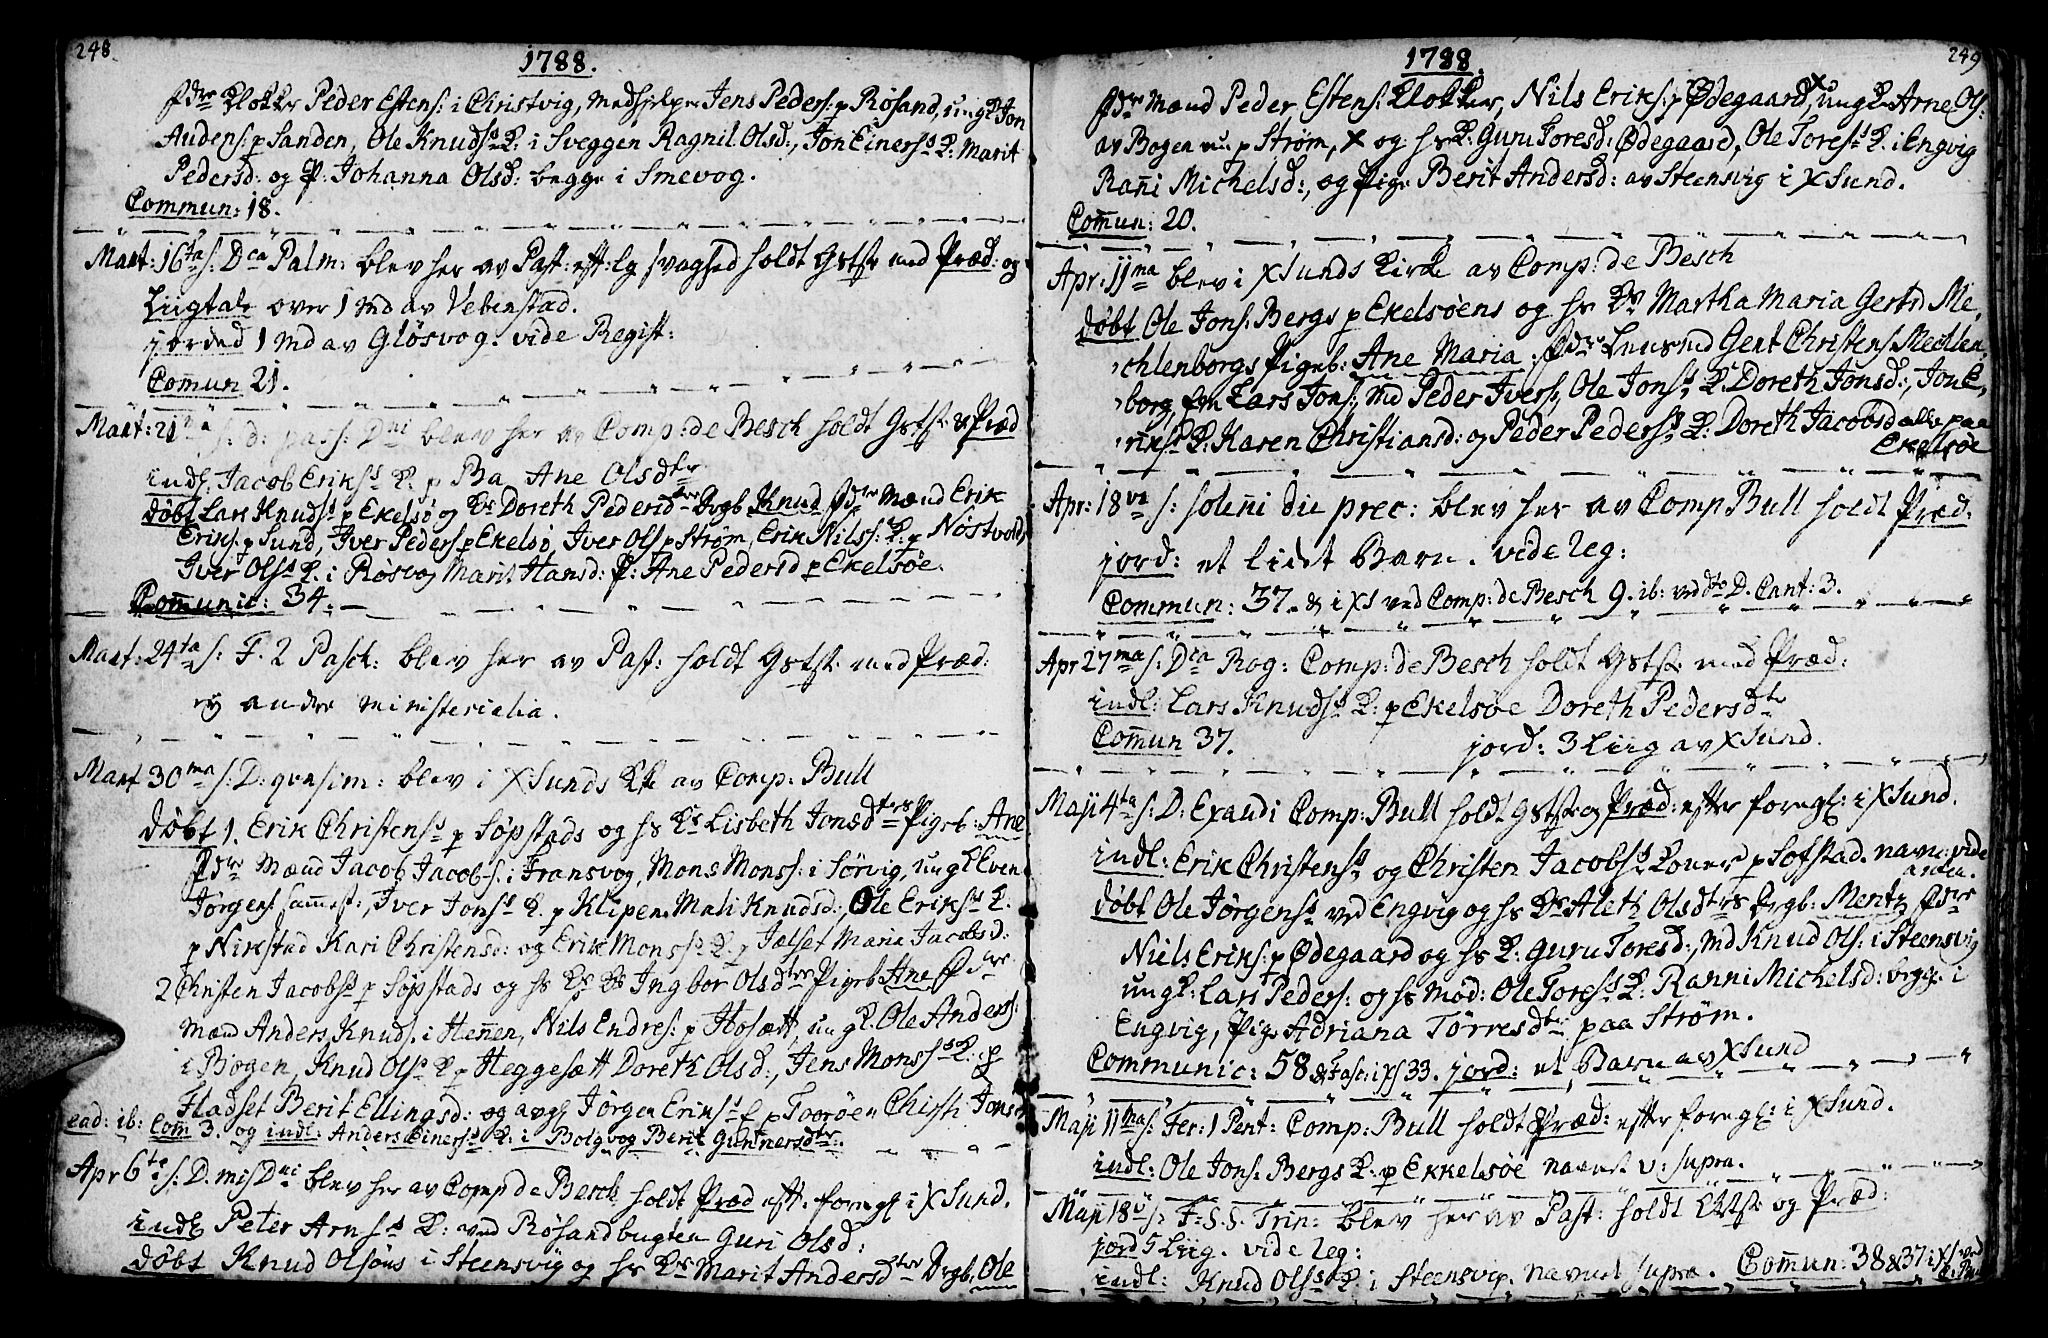 248.
1788.
fdre Klokker Peder Estens: i Christvig, Medhjelper Jens Peders: p Røsand, ung K Jon
Audens: p Sanden, Ole Knudss K: i Sveggen Ragnil Olsd:, Jon Einerss K: Marit
Pedersd: og P: Johanna Olsd: begge i Smevog.
Commun: 18.
Mart: 16ta s: Dca Palm: blev her av Past: eft: lg svaghed holdt Gstst med Præd: og
Liigtale over 1 Md av Vebenstad.
jorded 1 Md av Gløsvog. vide Regist:
Com̄un 21.
Mart: 21ma s: d: pass: Dni blev her av Comp: de Besch holdt Gstst & Præd
indl: Jacob Erikss K: p Ba Ane Olsdtr
døbt Lars Knudss p Ekelsø og Ks Doreth Pedersdtrs Drgb Knud fdre Mænd Erik
Eriks: p Sund, Iver Peders p Ekelsø Iver Ols p Strøm, Erik Nilss: K: p Nostvold,
Iver Olss K. i Røsvog Marit Hansd: P: Ane Pedersd p Ekelsøe.
Com̄unic: 34.
Mart: 24ta s: F. 2 Pasch: blev her av Past: holdt Gstst med Præd:
ey andre ministerialia.
Mart 30ma s: D: qvasim: blev i XSunds Kke av Comp: Bull
døbt 1. Erik Christenss p Søpstads og hs Ks Lisbeth Jonsdtrs Pigeb: Ane
fdre Mænd Jacob Jacobs: i Fransvog, Mons Monss: i Sørvig, ung K Even
Jørgens sam̄est:, Iver Jonss K. p Klipen Mali Knudsd:, Ole Erikss K.
p Nirstad Kari Christensd: og Erik Monss K: p Jælset Maria Jacobsd:
2 Christen Jacobss p Søpstads og hs Ks Ingbor Olsdtrs Pigeb Ane fdre
Mænd Anders Knuds: i Hen̄en, Nils Endres: p Hosætt, ung K. Ole Anders:
i Bogen, Knud Olss K p Heggesætt Doreth Olsd:, Jens Monss K: p
Fladset Berit Ellingsd: og avgl Jørgen Erikss p Toorøen Chirst: Jons
ead: ib: Com̄ 3. og indl: Anders Einerss K: i Bolgvog Berit Gun̄ersdtr.
Apr 6te s: D. mis Dni blev her av Comp de Besch holdt Præd eft: foregl i XSund.
indl Peter Arnss K: ved Røsandbugten Guri Olsd:
døbt Knud Olsøns i Steensvig og hs Ks Marit Andersdtrs Drgb. Ole
249
1788.
fdre Mænd Peder Estens: Klokker, Nils Eriks: p Ødegaard, X ung K Arne Ols:
av Bogen nu p Strøm, X og hs K: Guru Toresd: Ødegaard, Ole Toress K. i Engvig
Ran̄i Michelsd:, og Pige Berit Andersd: av Steensvig i XSund.
Com̄un: 20.
Apr: 11ma blev i XSunds Kirke av Comp: de Besch
døbt Ole Jons: Bergs p Ekelsøens og hs Ks Martha Maria Gertd Me,
chlenborgs Pigeb: Ane Maria. fdre Gert Christens Mechlen
borg, Lars Jons:, Md Peder Ivers:, Ole Jonss K. Doreth Jonsd:, Jon E,
K: Karen Christiansd: og Peder Pederss K: Doreth Jacobsd alle paa
Ekelsøe
Apr: 18va s: solen̄i die prec: blev her av Comp Bull holdt Præd:
jord: et lidet Barn. vide leg:
Commun: 37. & i XS ved Comp: de Besch 9. ib: ved dto D. Cant: 3.
Apr 27ma s: Dca Rog: Comp: de Besch holdt Gstst med Præd:
indl: Lars Knudss K. p Ekelsøe Doreth Pedersdtr
Com̄un 37. jord: 3 Liig av XSund.
Maji 4ta s: D: Exaudi Comp: Bull holdt Gstst og Præd: efter foregl: i XSund.
indl: Erik Christenss og Christen Jacobss Koner p Sofstad. navn: vide
antea.
døbt Ole Jørgenss ved Engvig og hs Ks Aleth Olsdtrs Drgb: Mentz fdre
Niels Eriks: p Ødegaard og hs K: Guru Toresd:, Md Knud Ols: i Steensvig
ung K: Lars Peders: og hs Mod: Ole Toress K: Ran̄i Michelsd: begge i
Engvig, Pige Adriana Tørresdtr paa Strøm.
Communic: 58 & i XS 33. jord: et Barn av XSund
Maji 11ma s: Fer: 1 Pent: Comp: Bull holdt Præd: efter foregl: i XSund.
indl: Ole Jons: Bergs K: p Ekkelsøe navnt v: supra.
Maji 18v s: F: S. S. Trin: blev her av Past: holdt Gstst og Præd:
jord 5 Liig. vide leg:
indl: Knud Olss K: i Steensvig. navnet supra. Com̄un: 38 & 37 i XS ved